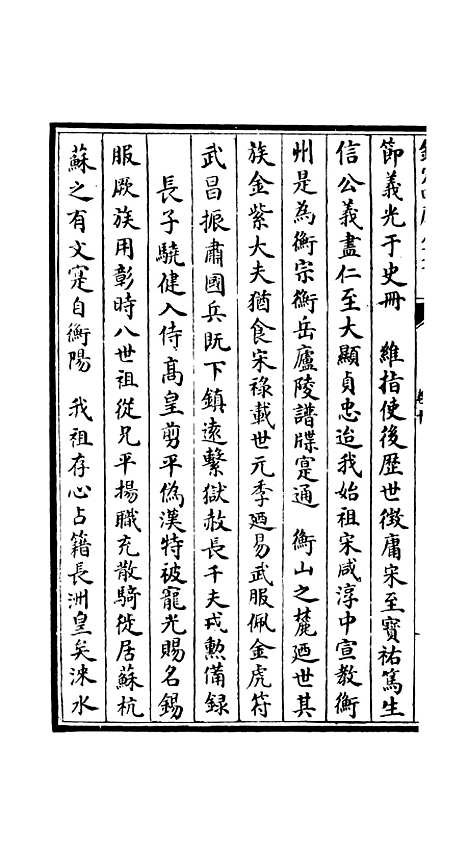 節義光于史冊　維指使後歴世徴庸宋至寳祐篤生
信公義盡仁至大顯貞忠迨我始祖宋咸淳中宣教衡
州是為衡宗衡岳廬陵譜牒寔通　衡山之麓廼世其
族金紫大夫猶食宋祿載世元季廼易武服佩金虎符
武昌振肅國兵既下鎮逺繫獄赦長千夫戎勲備録
長子驍健入侍髙皇剪平偽漢特被寵光賜名錫
服厥族用彰時八世祖從兄平揚職充散騎徙居蘇杭
蘇之有文寔自衡陽　我祖存心占籍長洲皇矣淶水